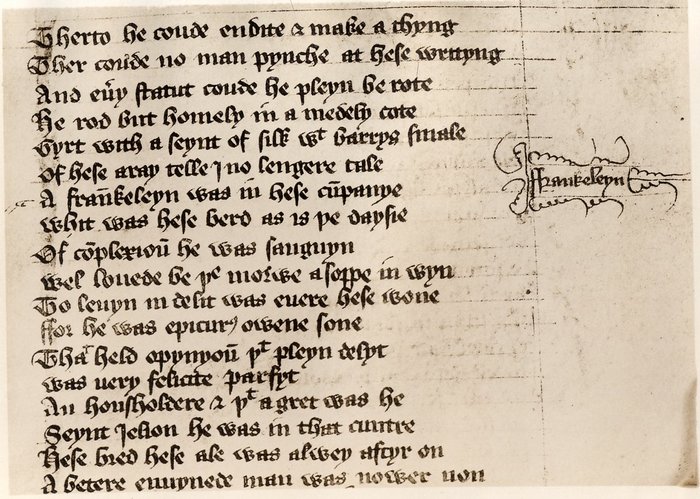 Therto he coude endite & make a thyng
Ther coude no man pynche at hese writyng
And eu͛y statut coude he pleyn be rote
He rod but homely in a medely cote
Gyrt with a seynt of silk wᵗ barrys smale
Of hese aray telle I no lengere tale
A frankeleyn was in hese cūpanye
whit was hese berd as is þe daysie
Of cōplexioū he was sanguyn
wel louede he þᵉ morwe a soppe in wyn
To leuyn in delit was euere hese wone
ffor he was epicurꝰ owene sone
That held opynyoū þᵗ pleyn delyt
was uery felicite parfyt
An housholdere & þᵗ a gret was he
Seynt Julion he was in that cuntre
Hese bred hese ale was alwey aftyr on
A betere enuynede man was nower non
ffrankeleyn